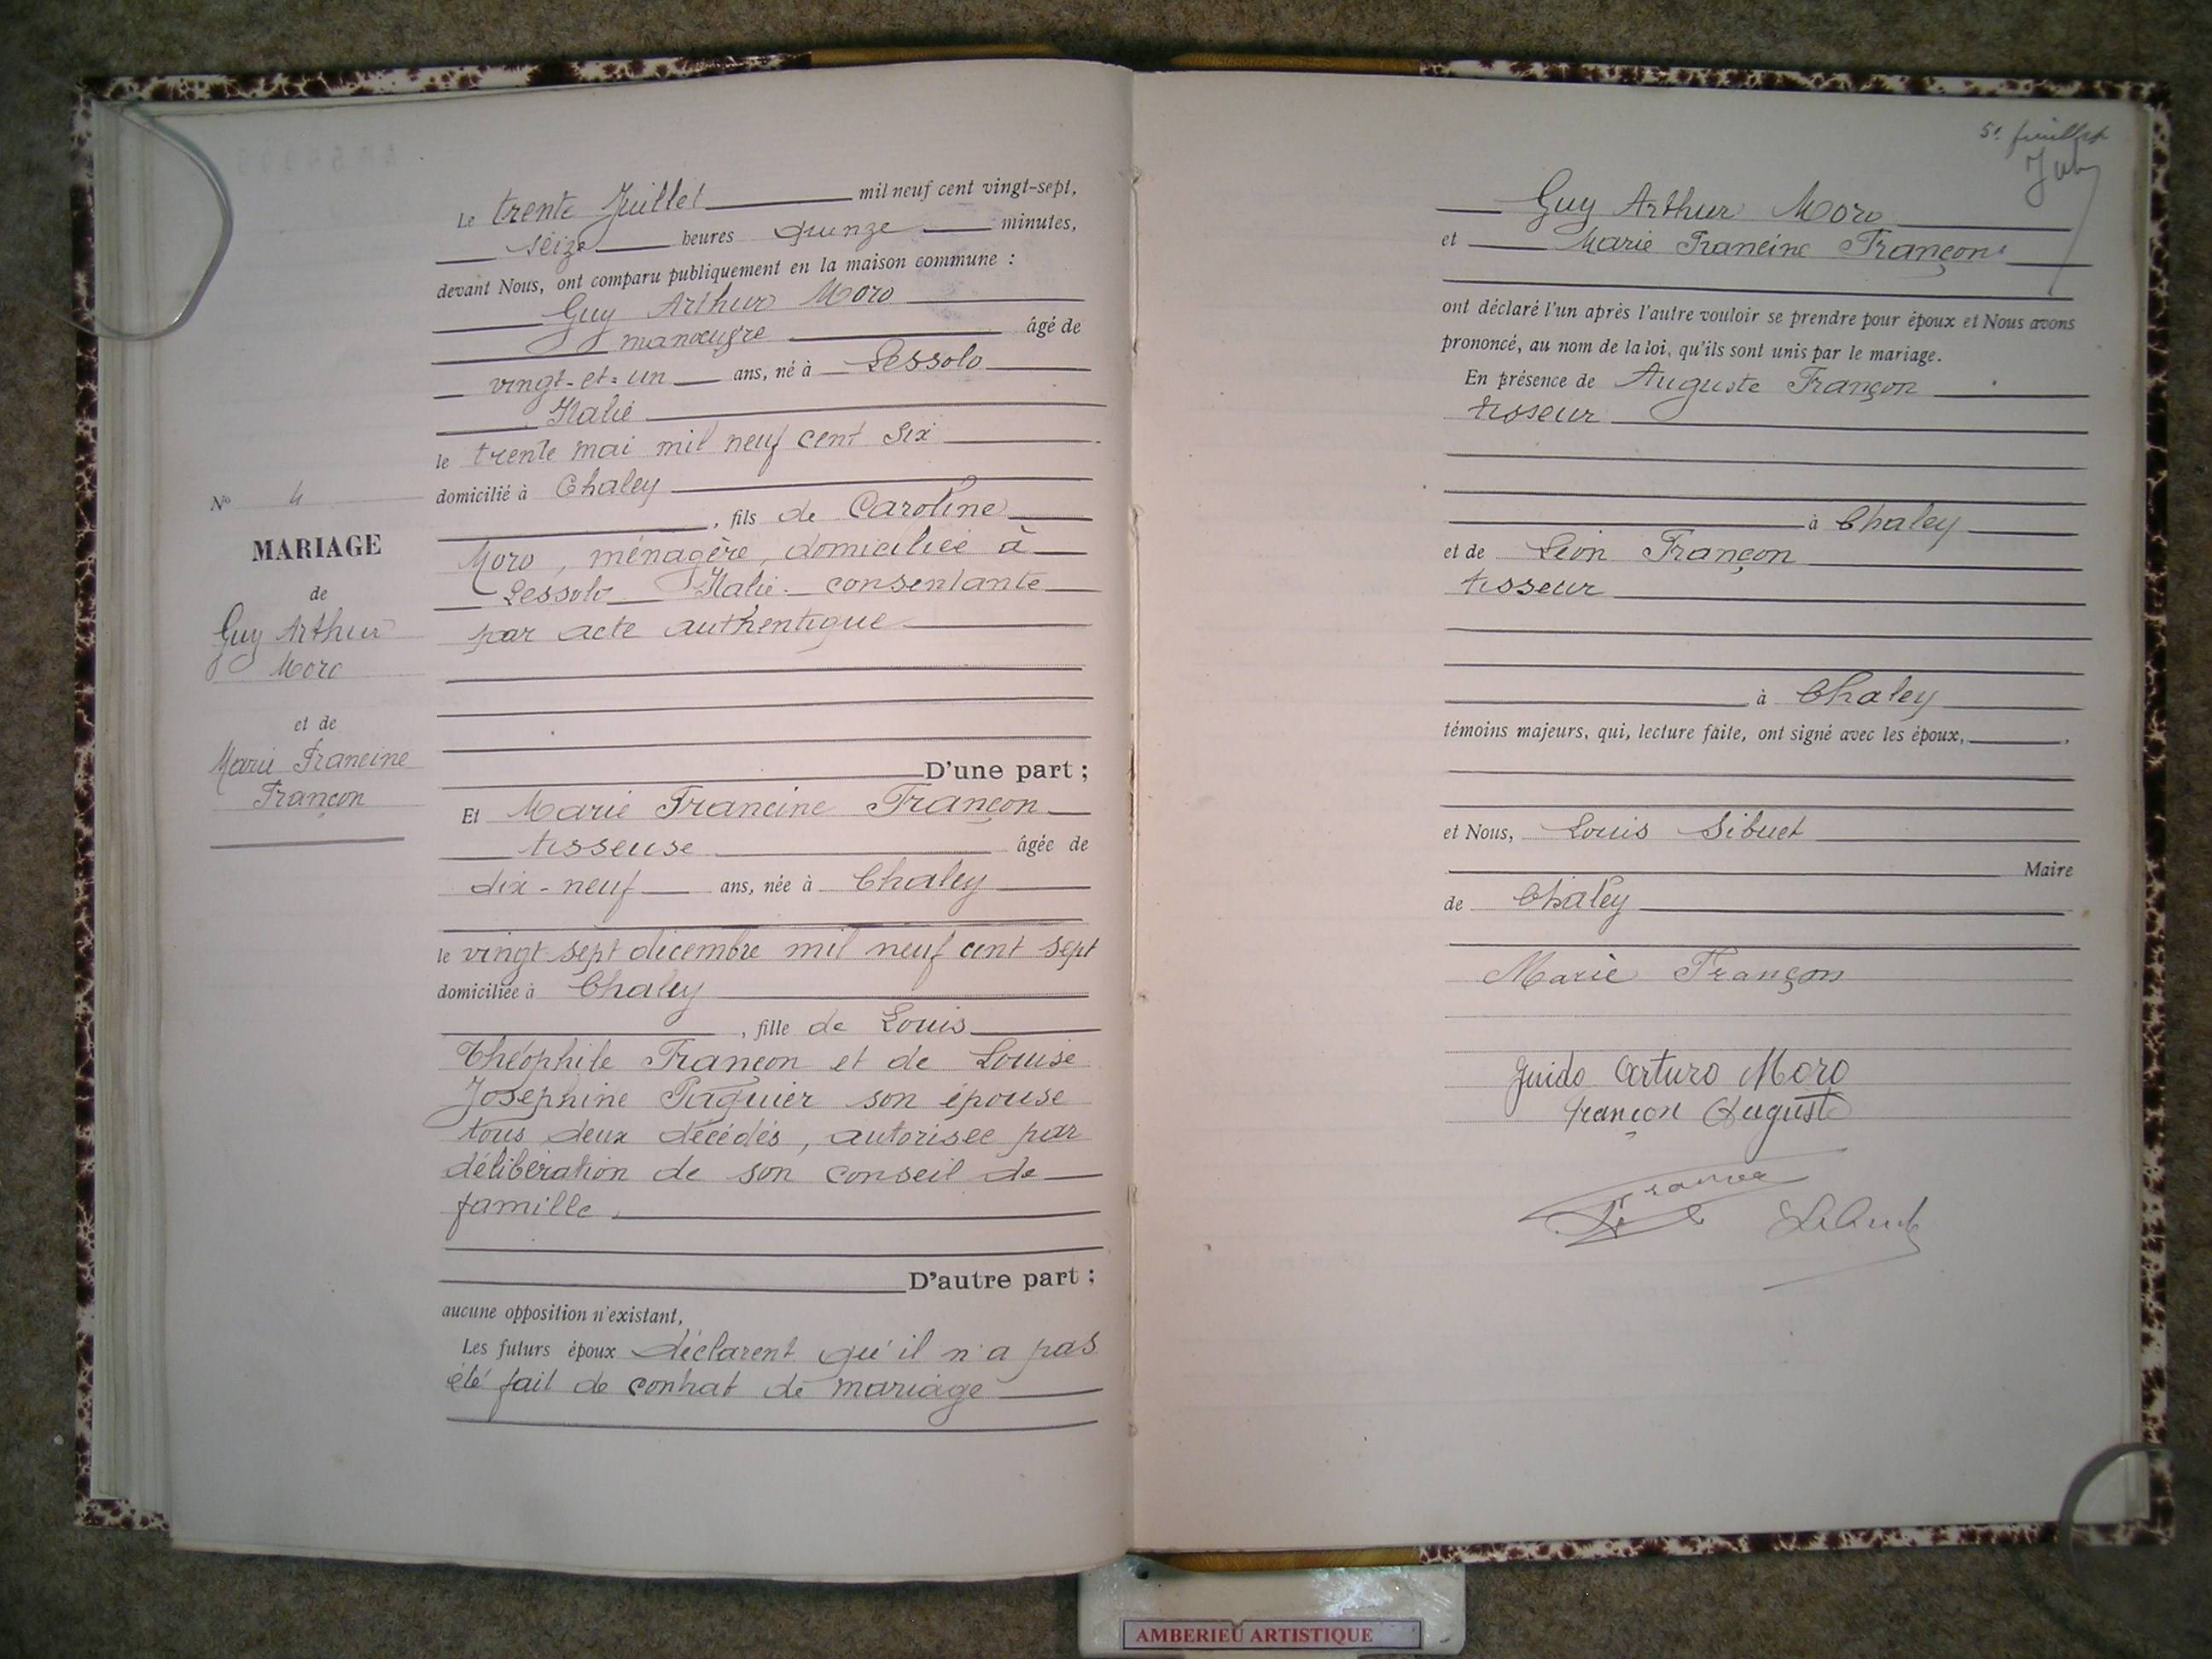 Le trente Juillet mil neuf cent vingt-sept,
seize heures quinze minutes,
devant Nous, ont comparu publiquement en la maison commune :
Guy Arthur Moro
manœuvre âgé de
vingt-et-un ans, né à Lessolo
Italie
le trente mai mil neuf cent six
domicilié à Chaley
, fils de Caroline
Moro, ménagère, domiciliée à
Lessolo Italie consentante
par acte authentique
D'une part ;
Et Marie Francine Françon
tisseuse âgée de
dix-neuf ans, née à Chaley
le vingt sept décembre mil neuf cent sept
domiciliée à Chaley
, fille de Louis
Théophile Françon et de Louise
Joséphine Paquier son épouse
tous deux décédés, autorisée par
délibération de son conseil de
famille.
D'autre part ;
aucune opposition n'existant,
Les futurs époux déclarent qu'il n'a pas
été fait de contrat de mariage
N° 4
MARIAGE
de
Guy Arthur
Moro
et de
Marie Francine
Françon
5e feuillet
Guy Arthur Moro
et Marie Francine Françon
ont déclaré l'un après l'autre vouloir se prendre pour époux et Nous avons
prononcé, au nom de la loi, qu'ils sont unis par le mariage.
En présence de Auguste Françon
tisseur
à Chaley
et de Léon Françon
tisseur
à Chaley
témoins majeurs, qui, lecture faite, ont signé avec les époux,
et Nous, Louis Sibuet
Maire
de Chaley
Marie Françon
Guido Arturo Moro
Françon Auguste
AMBERIEU ARTISTIQUE